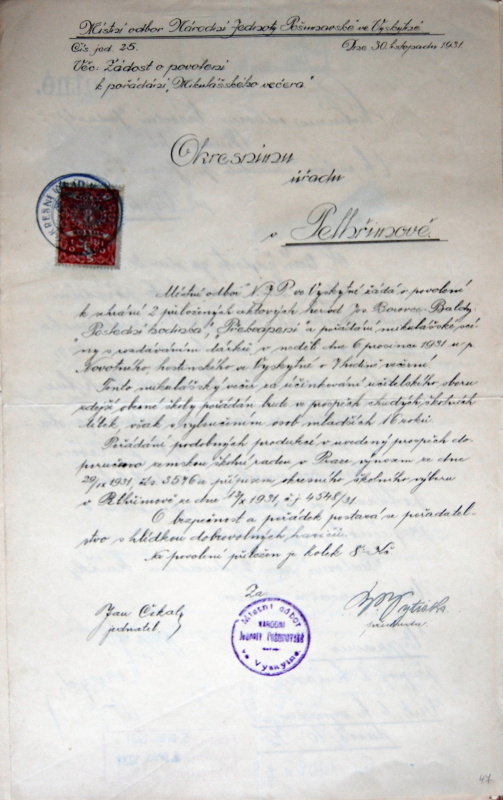 Místní odbor Národní Jednoty Pošumavské ve Vyskytné
Čís. jed. 25. Dne 30. listopadu 1931
Věc: Žádost o povolení
k pořádání „Mikulášského večera"
Okresnímu
úřadu
v Pelhřimově.
Místní odbor N.J.P. ve Vyskytné žádá o povolení
k sehrání 2 přiložených aktových her od
„Poslední hodina", „Překvapení" a pořádání mikulášské
s rozdáváním dárků v neděli dne 6. prosince 1931 u p.
Novotného, hostinského ve Vyskytné o hodině večerní.
Tento mikulášský večer za účinkování učitelského sboru
zdejší obecné školy pořádán bude ve prospěch chudých školních
dítek, však s vyloučením osob mladších 16 roků.
Pořádání podobných produkcí v uvedený prospěch do-
poručeno zemskou školní radou v Praze výnosem ze dne
1931, a přípisem okresního školního výboru
v Pelhřimově ze dne 1931, č.j. 4548/31.
O bezpečnost a pořádek postará se pořadatel-
stvo s hlídkou dobrovolných hasičů.
Na povolení přiložen je kolek 5 Kč
Za
Jan Čekal
jednatel.
Místní odbor
NÁRODNÍ
Jednoty Pošumavské
ve Vyskytné
předseda.
47.